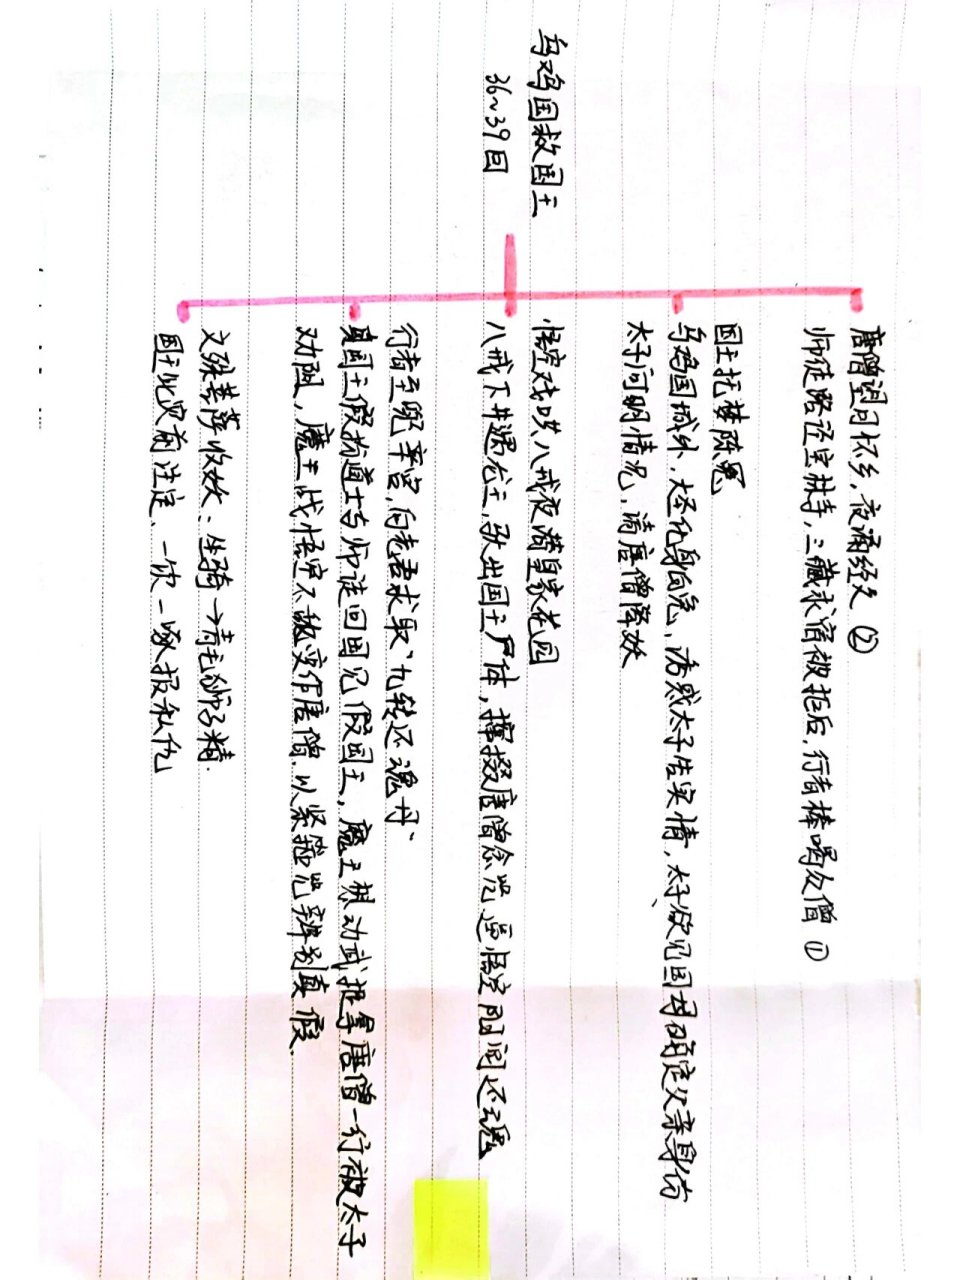 乌鸡国救国王
36~39回
唐僧望月怀乡,夜诵经文 ②
师徒路迳宝林寺,三藏求宿被拒后,行者棒喝众僧 ①
国王托梦陈冤
乌鸡国城外,大圣化身白兔,诱惑太子告实情,太子欲见国母确定父亲身份
太子问明情况,请唐僧降妖
悟空戏哄八戒夜潜皇家花园
八戒下井遇龙王,驮出国王尸体,撺掇唐僧念咒逼悟空阴间还魂
行者至兜率宫,向老君求取"九转还魂丹"
真国王假扮道士与师徒回国见假国王,魔王想动武捉拿唐僧一行被太子
劝阻,魔王战悟空不敌变作唐僧,以紧箍咒辨别真假.
文殊菩萨收妖:坐骑→青毛狮子精.
国王此灾前注定,一饮一啄报私仇